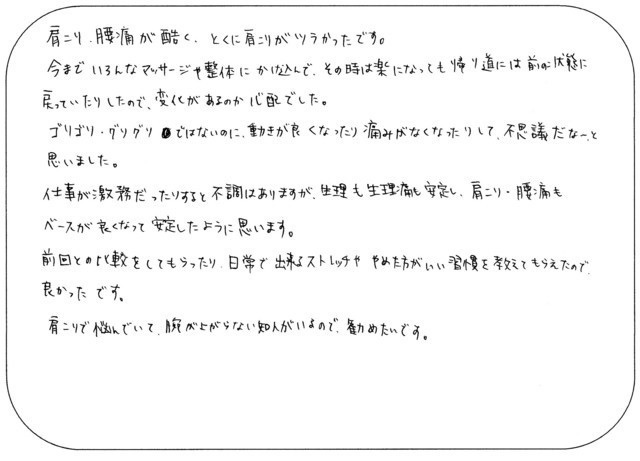 肩こり、腰痛が酷く、とくに肩こりがツラかったです。
今まで いろんなマッサージや整体に かけ込んで、その時は楽になっても帰り道には前の状態に
戻っていたりしたので、変化があるのか心配でした。
ゴリゴリ・グリグリ ではないのに、動きが良くなったり痛みがなくなったりして、不思議だなーと
思いました。
仕事が激務だったりすると不調はありますが、生理も生理痛も安定し、肩こり・腰痛も
ベースが良くなって安定したように思います。
前回との比較をしてもらったり、日常で出来るストレッチや やめた方がいい習慣を教えてもらえたので、
良かったです。
肩こりで悩んでいて、腕が上がらない知人がいるので、勧めたいです。